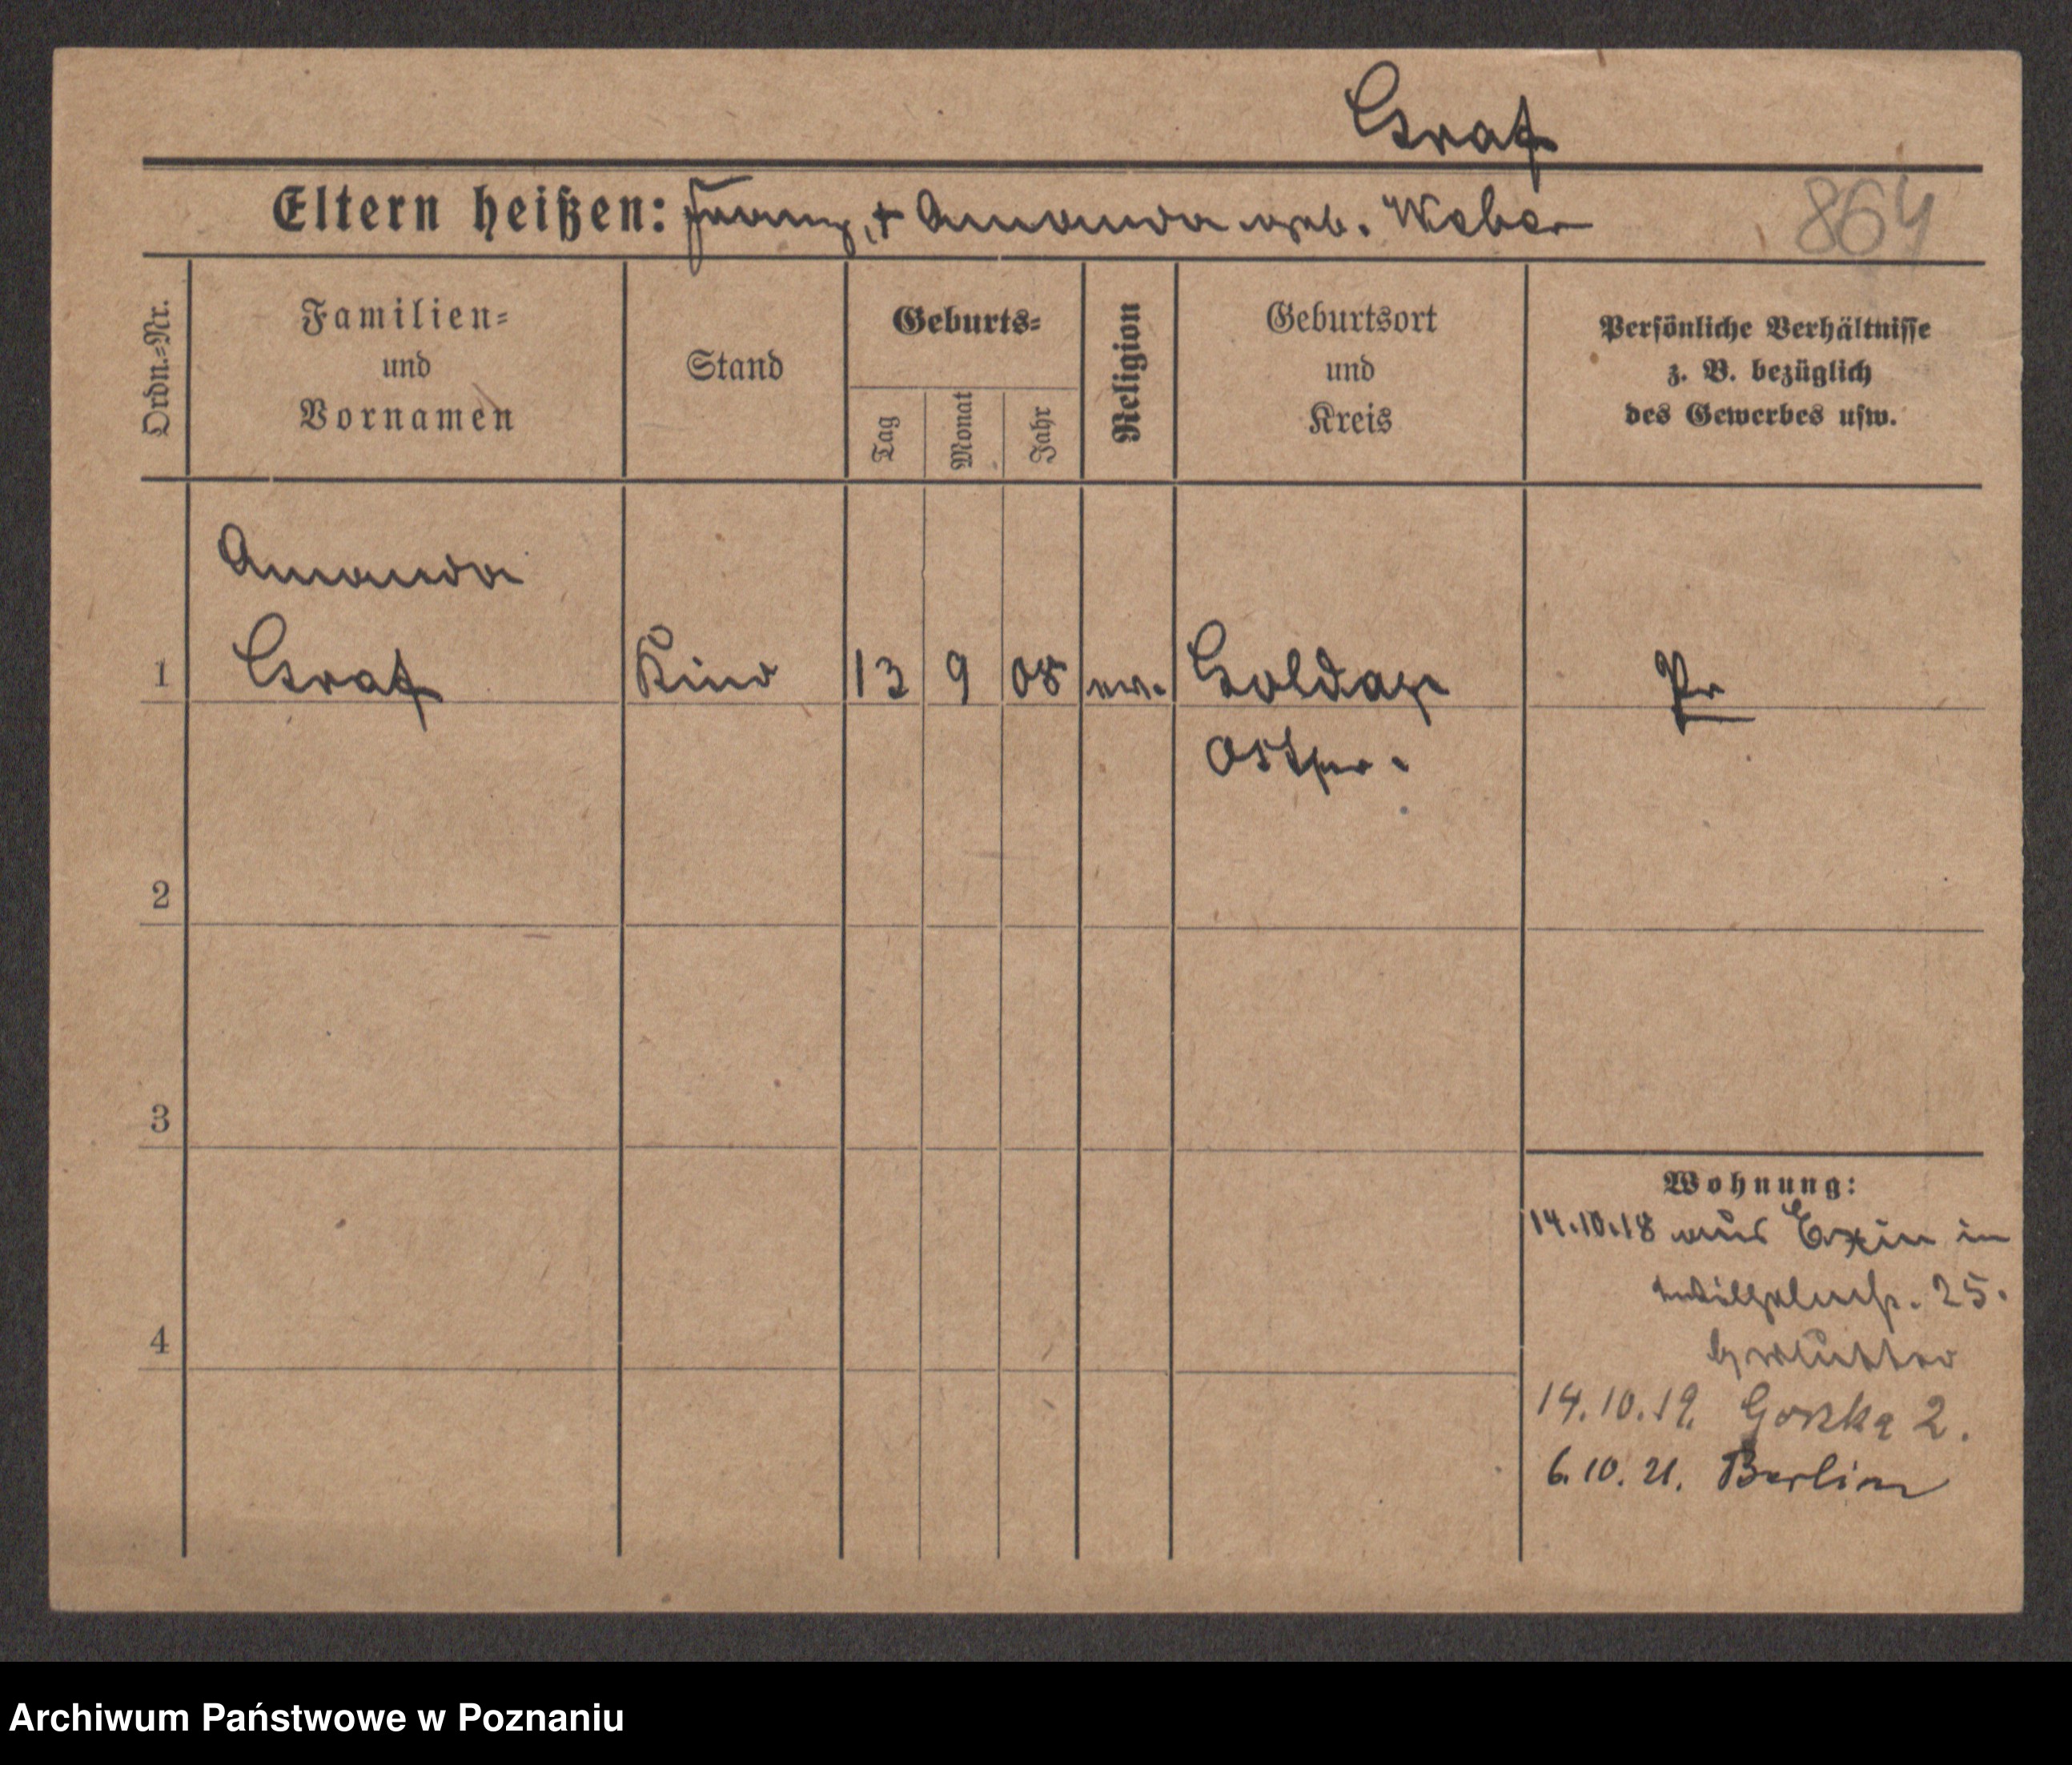 Graf
Eltern heißen: Franz, + Amanda geb. Weber
864
Ordn.=Nr.
Familien=
und
Vornamen
Stand
Geburts=
Tag
Monat
Jahr
Religion
Geburtsort
und
Kreis
Persönliche Verhältnisse
z. B. bezüglich
des Gewerbes usw.
Amanda
1 Graf Kind 13 9 08 ev. Goldap Pr
Ostpr.
2
3
Wohnung:
14.10.18 aus Exin in
Wilhelmstr. 25.
4
b/ Mutter
14.10.19. Gorzka 2.
6.10.21. Berlin
Archiwum Państwowe w Poznaniu